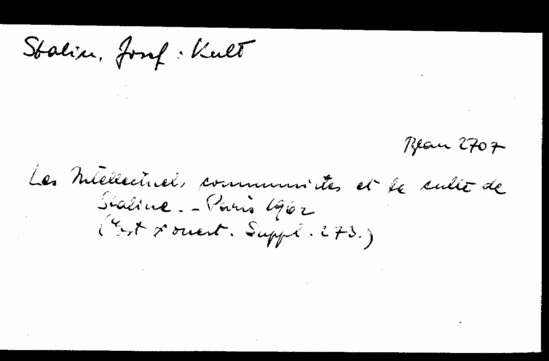 Stalin, Josef : Kult
Bean 2707
Les Intellectuels communistes et le culte de
Staline. - Paris 1962
(Est & ouest. Suppl. 273.)